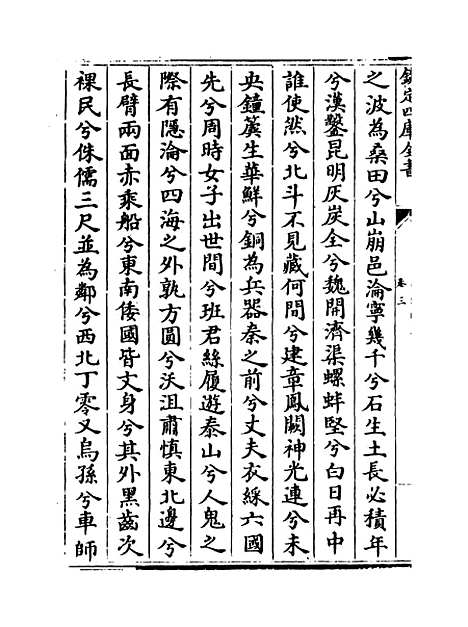 欽定四庫全書
卷三
之波為桑田兮山崩邑淪寧幾千兮石生土長必積年
兮漢鑿昆明灰炭全兮魏開濟渠螺蚌堅兮白日再中
誰使然兮北斗不見藏何間兮建章鳳闕神光連兮未
央鐘簴生華鮮兮銅為兵器秦之前兮丈夫衣綵六國
先兮周時女子出世間兮班君絲履遊泰山兮人鬼之
際有隱淪兮四海之外孰方圓兮沃沮肅慎東北邊兮
長臂兩面赤乘船兮東南倭國皆文身兮其外黑齒次
裸民兮侏儒三尺並為鄰兮西北丁零又烏孫兮車師